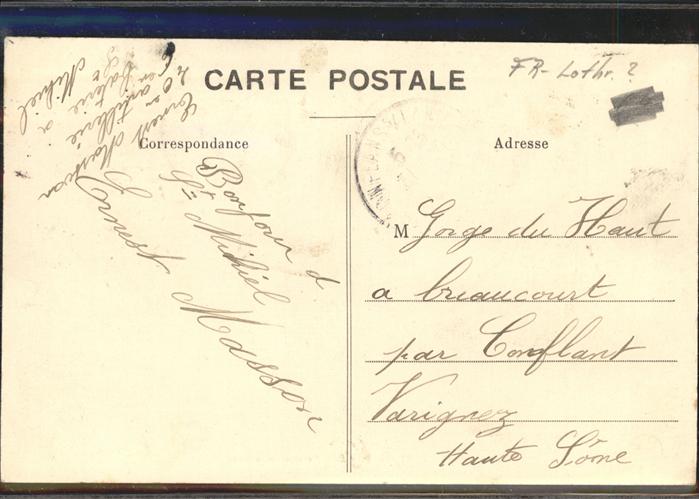 CARTE POSTALE
FR - Lothr. ?
Correspondance
Adresse
Ernest Masson
20 en artillerie
6 en batterie a
St Mihiel
Bonjour d
St Mihiel
Ernest Masson
M Gorge du Haut
a breaucourt
par Conflant
Varignez
Haute Sône